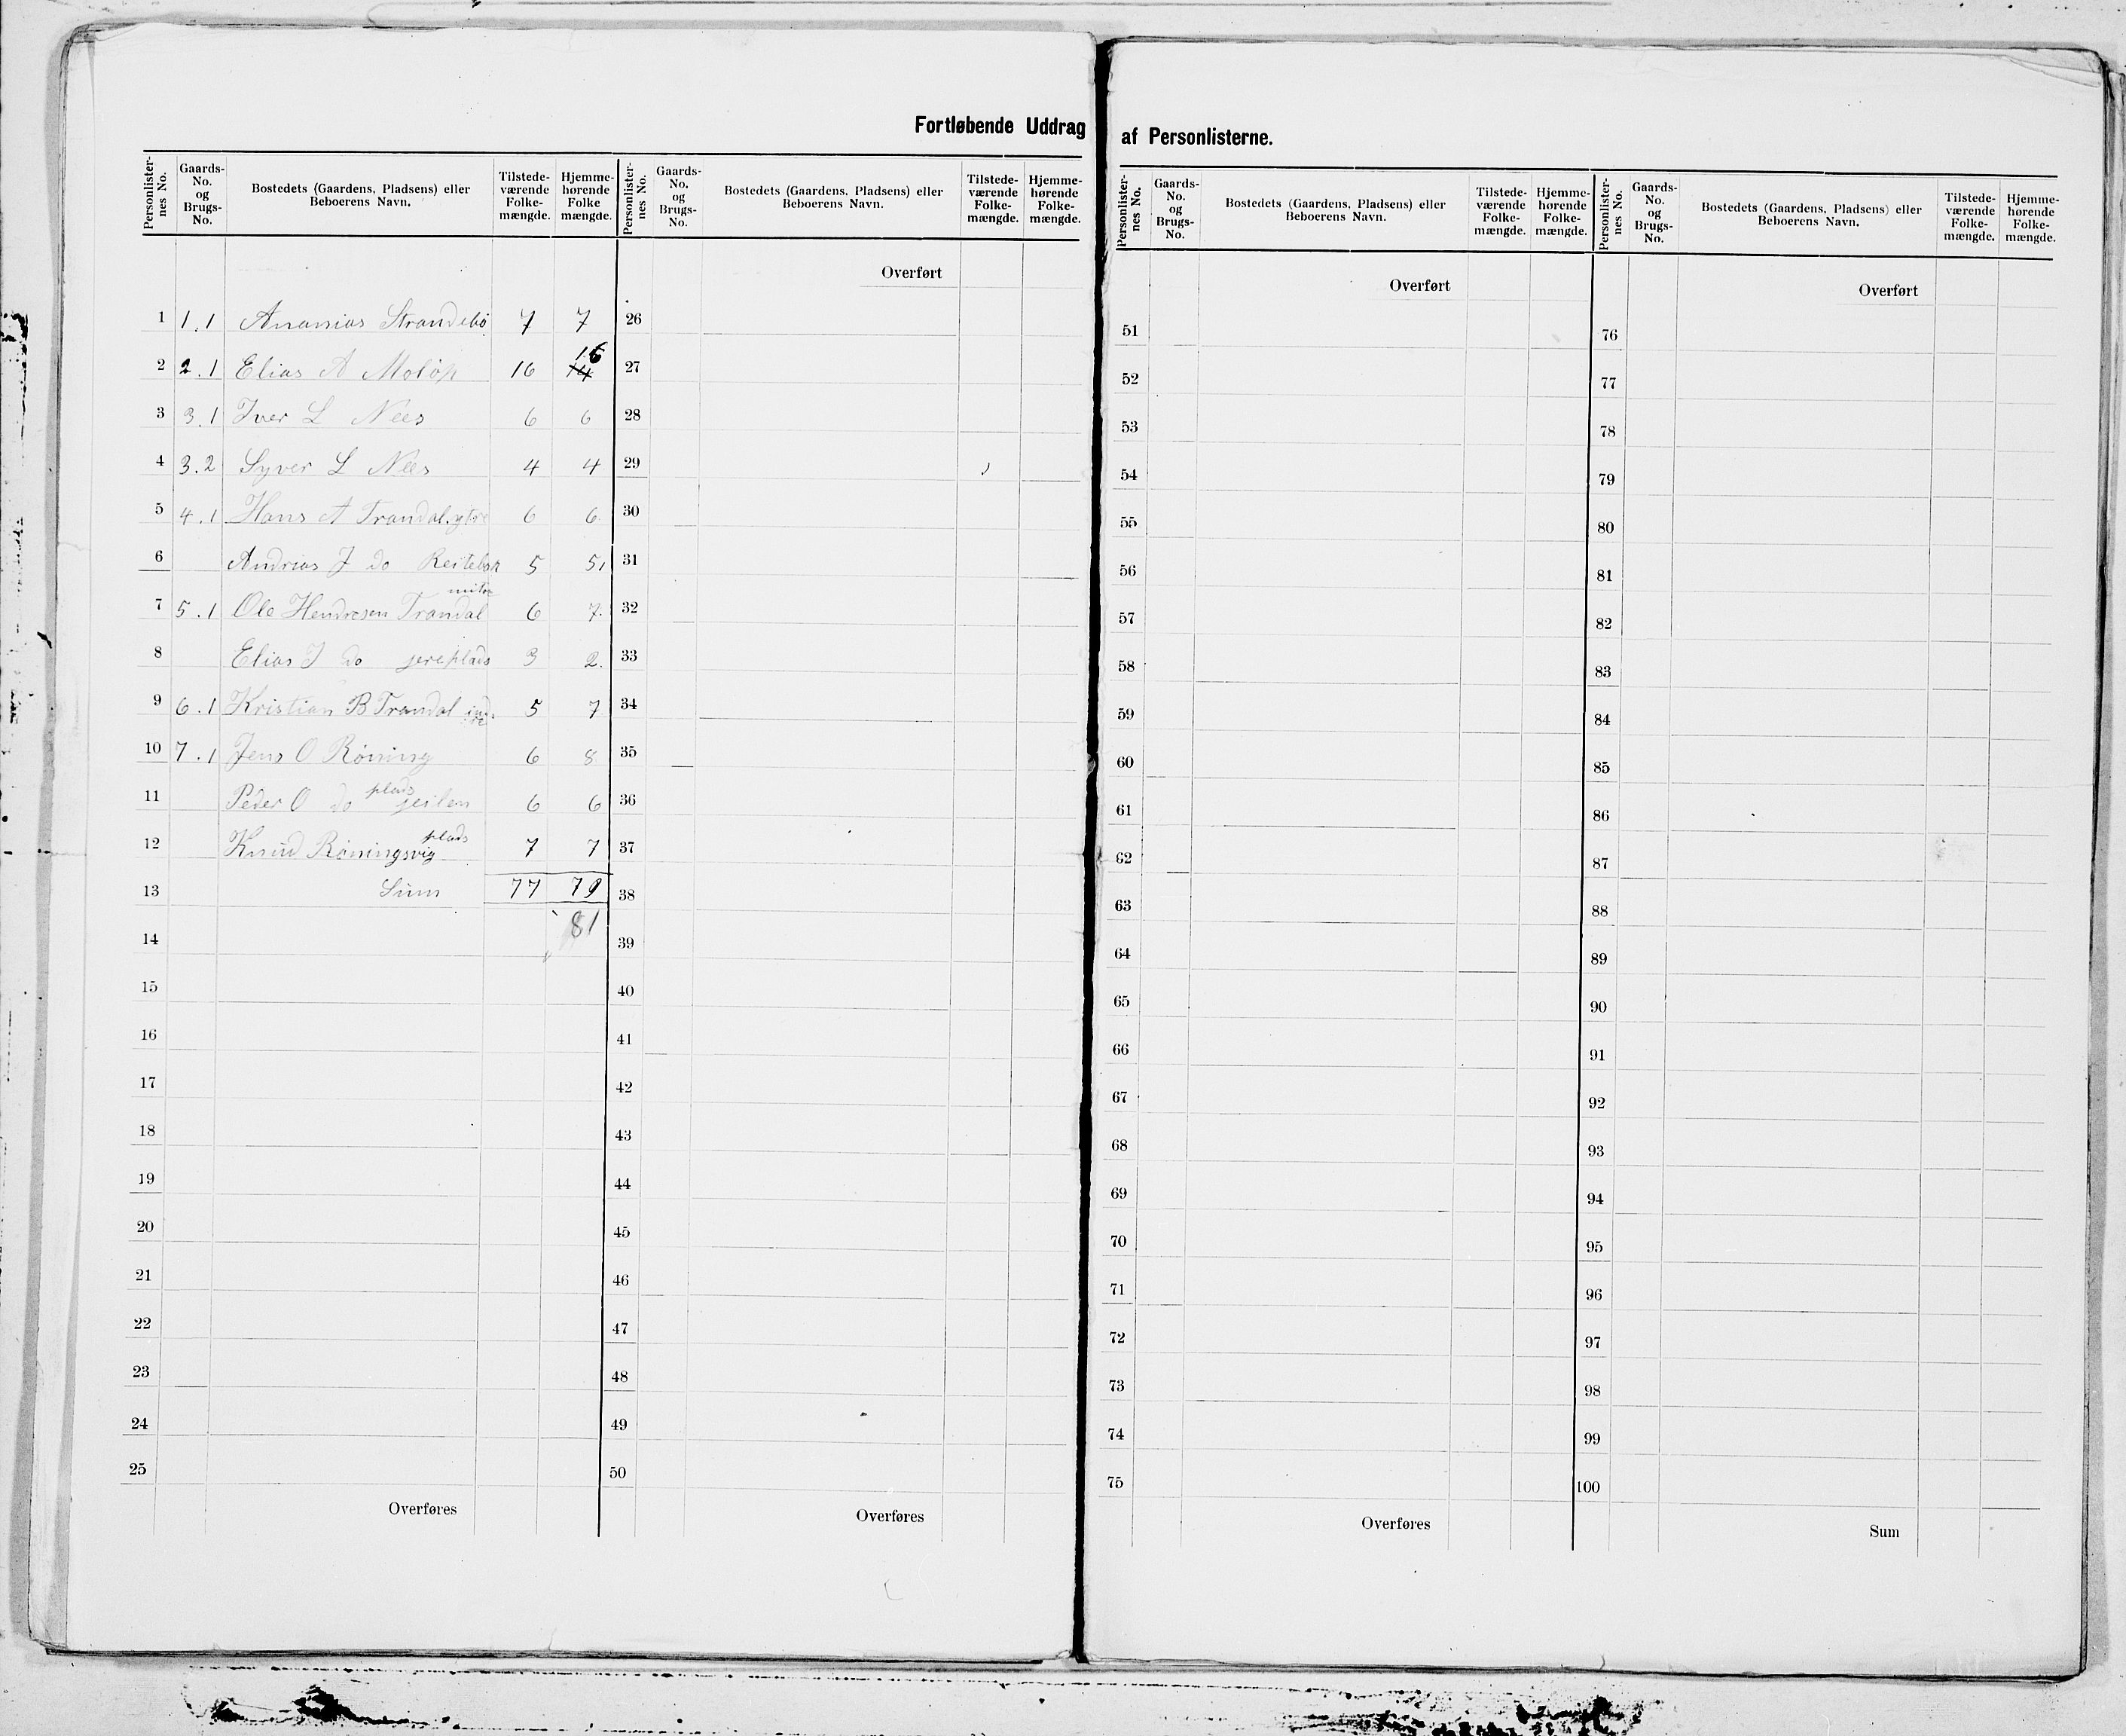 Fortløbende Uddrag af Personlisterne.
Personlister-nes No. Gaards-No. og Brugs-No. Bostedets (Gaardens, Pladsens) eller Beboerens Navn. Tilstede-værende Folke-mængde. Hjemme-hørende Folke mængde. Personlister-nes No. Gaards-No. og Brugs-No. Bostedets (Gaardens, Pladsens) eller Beboerens Navn. Tilstede-værende Folke-mængde. Hjemme-hørende Folke-mængde.
1 1.1 Ananias Strandebö 7 7
2 2.1 Elias A 16 14 16
3 3.1 Iver L Nees 6 6
4 3.2 Syver L Nees 4 4
5 4.1 Hans A Trandal ytre 6 6
6 Andrias J do 5 5
7 5.1 Ole Hendresen Trandal 6 7
8 Elias J do 3 2
9 6.1 Kristian B Trandal indre 5 7
10 7.1 Jens O Röning 6 8
11 Peder O do plads 6 6
12 Knud Röningsvig plads 7 7
13 Sum 77 79
81
14
15
16
17
18
19
20
21
22
23
24
25
Overføres
Overført
26
27
28
29
30
31
32
33
34
35
36
37
38
39
40
41
42
43
44
45
46
47
48
49
50
Overføres
Personlister-nes No. Gaards-No. og Brugs-No. Bostedets (Gaardens, Pladsens) eller Beboerens Navn. Tilstede-værende Folke-mængde. Hjemme-hørende Folke-mængde. Personlister-nes No. Gaards-No. og Brugs-No. Bostedets (Gaardens, Pladsens) eller Beboerens Navn. Tilstede-værende Folke-mængde. Hjemme-hørende Folke-mængde.
Overført
51
52
53
54
55
56
57
58
59
60
61
62
63
64
65
66
67
68
69
70
71
72
73
74
75
Overføres
Overført
76
77
78
79
80
81
82
83
84
85
86
87
88
89
90
91
92
93
94
95
96
97
98
99
100
Sum